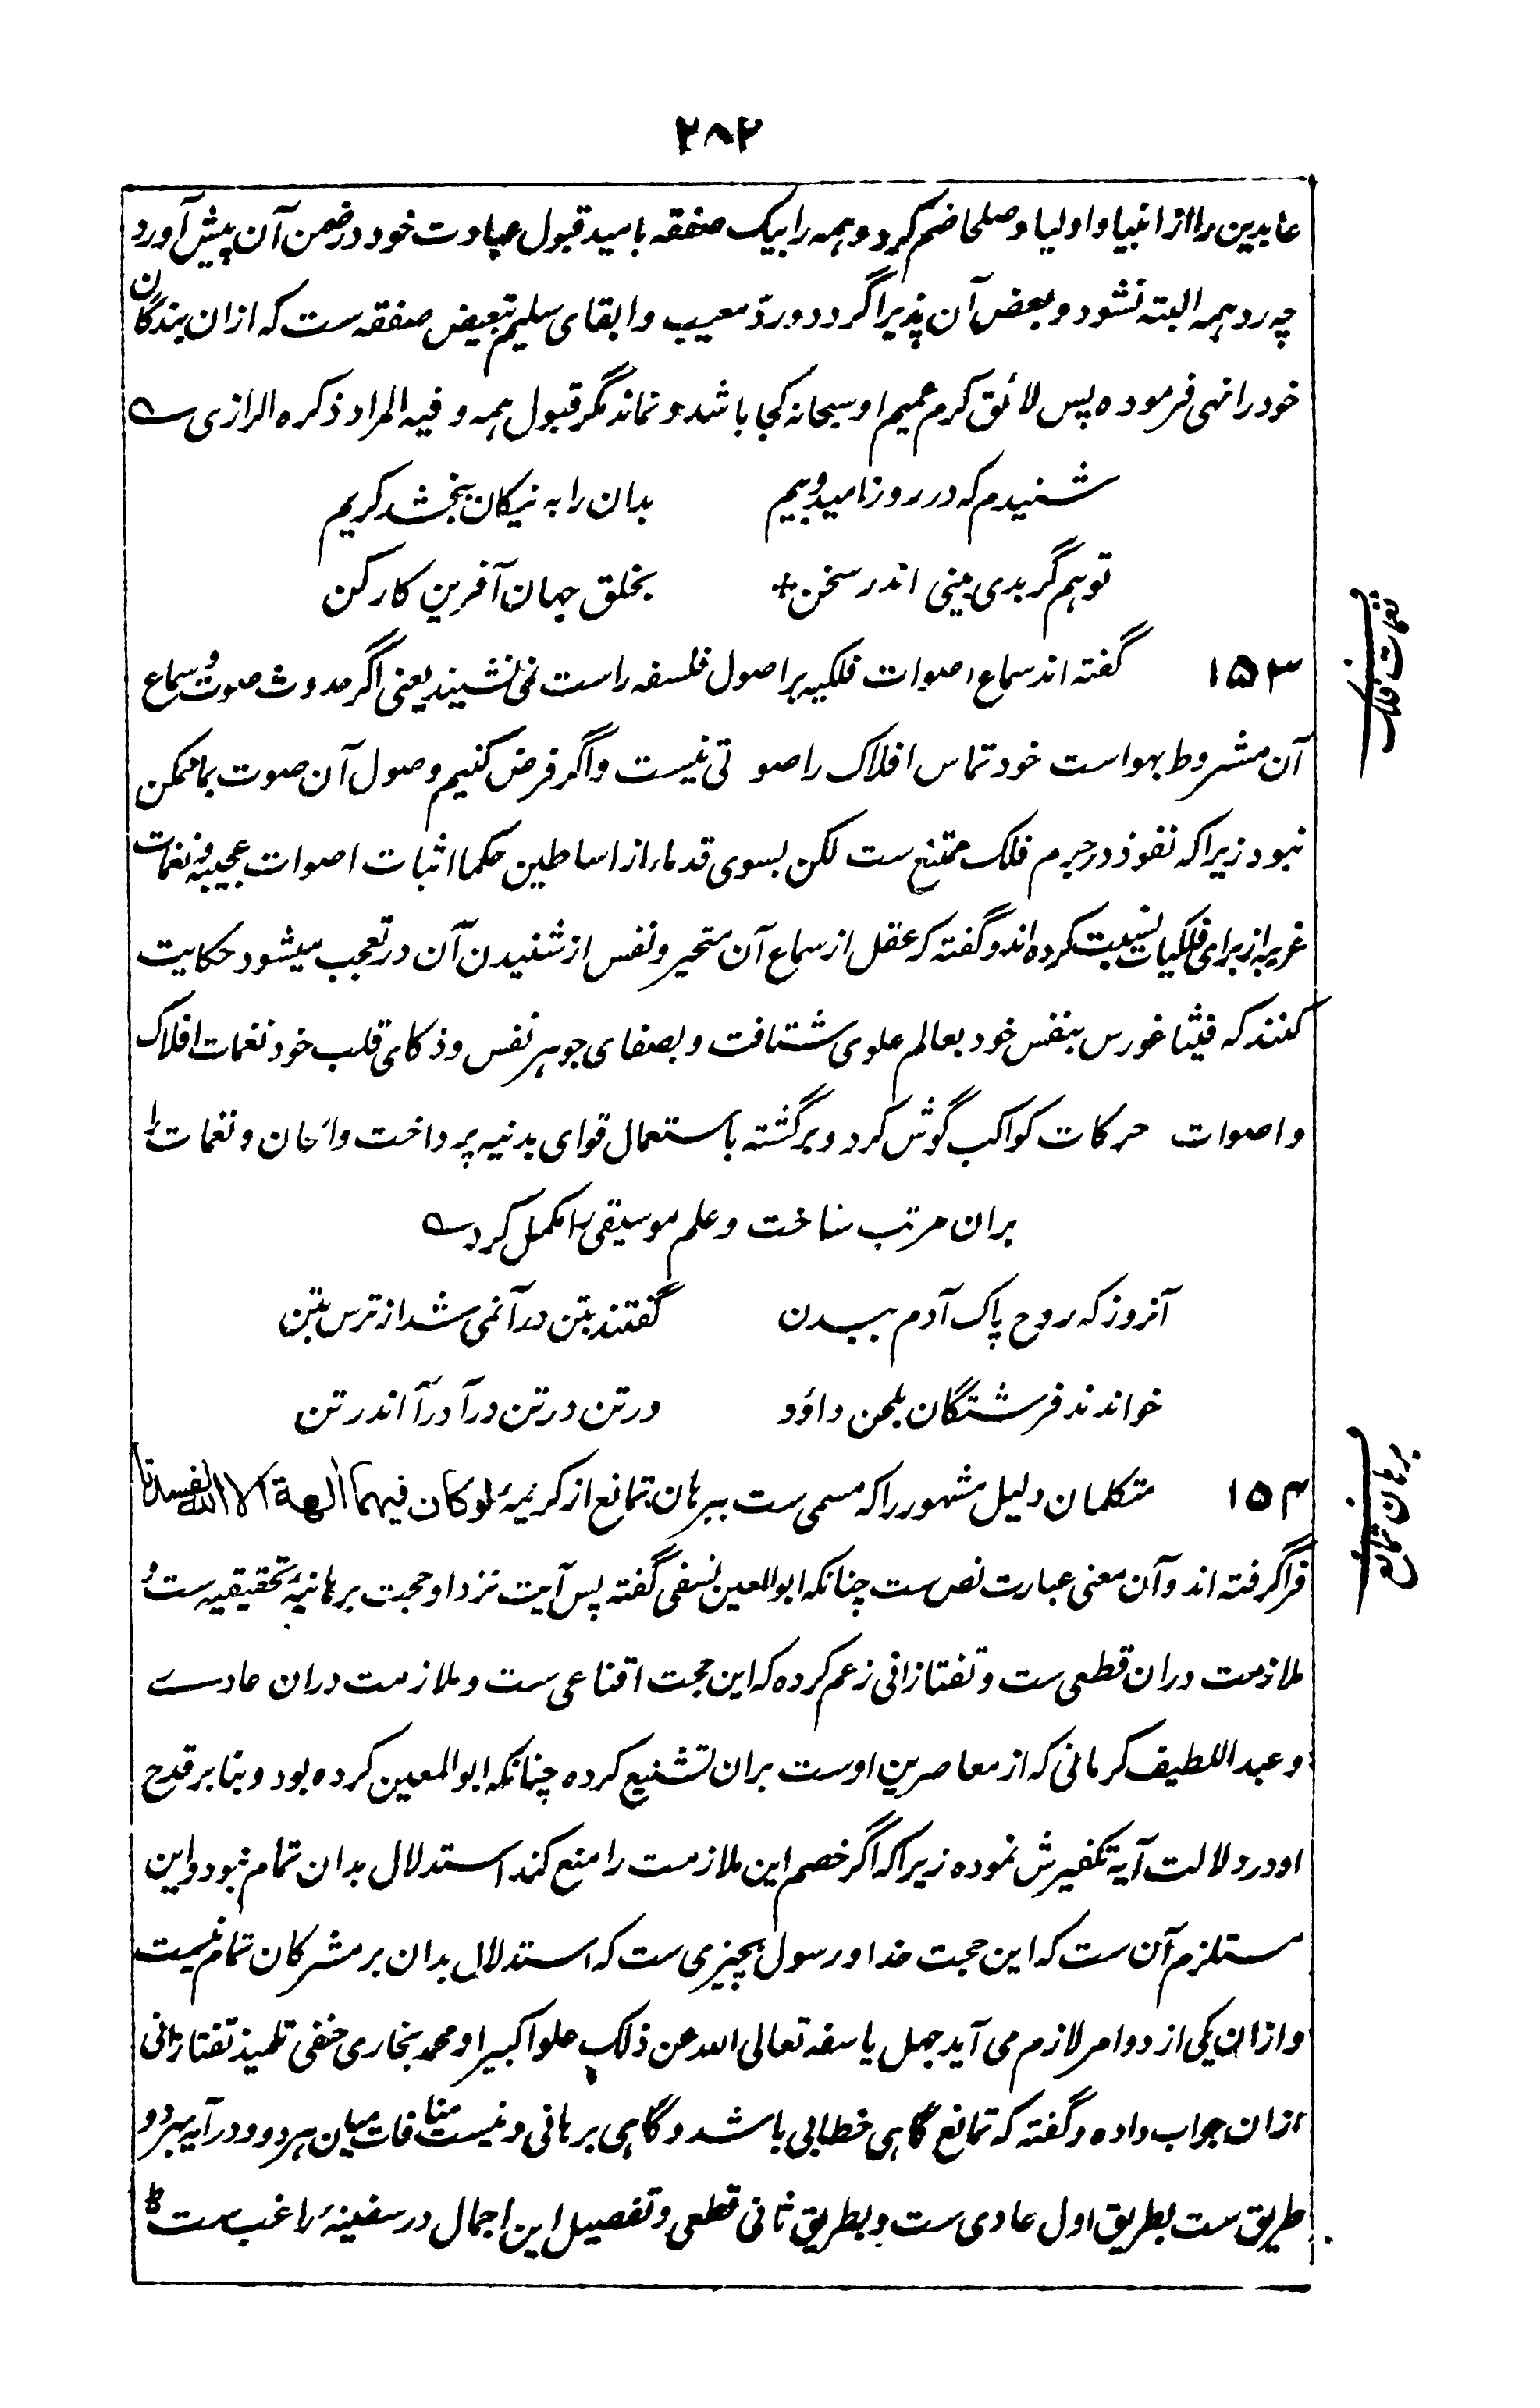 ۲۸۲
عابدین را از انبیا و اولیا و صلحا ضم کرد و همه را بیک صفقه بامید قبول عبادت خود در ضمن آن پیش آورد
چه رد همه البته نشود و بعض آن پذیرا گردد و ردّ معیب و ابقای سلیم تبعیض صفقه ست که ازان بندگان
خود را نهی فرموده پس لائق کرم عمیم او سبحانه کجا باشد و نماند مگر قبول همه و فیه المراد ذکره الرازی ے
شنیدم که در روز امید و بیم بدان را به نیکان ببخشد کریم
تو هم گر بدی بینی اندر سخن + بخلق جهان آفرین کار کن
نغمات فلک
۱۵۳ گفته اند سماع اصوات فلکیه بر اصول فلسفه راست نمی نشیند یعنی اگر حدوث صوت و سماع
آن مشروط بهواست خود تماس افلاک را صوتی نیست و اگر فرض کنیم وصول آن صوت بما ممکن
نبود زیرا که نفوذ در جرم فلک ممتنع ست لکن بسوی قدماء از اساطین حکما اثبات اصوات عجیبه و نغمات
غریبه از برای فلکیات نسبت کرده اند و گفته که عقل از سماع آن متحیر و نفس از شنیدن آن در تعجب میشود حکایت
کنند که فیثاغورس بنفس خود بعالم علوی شتافت و بصفای جوهر نفس و ذکای قلب خود نغمات افلاک
و اصوات حرکات کواکب گوش کرد و برگشته باستعمال قوای بدنیه پرداخت و الحان و نغمات را
بران مرتب ساخت و علم موسیقی را مکمل کرد ے
آنروز که روح پاک آدم ببدن گفتند بتن درآ نمی شد از ترس بتن
خواندند فرشتگان بلحن داؤد در تن در تن درآ درآ اندر تن
برهان تمانع
۱۵۴ متکلمان دلیل مشهور را که مسمی ست ببرهان تمانع از کریمهٔ لو کان فیهما اٰلهة الا الله لفسدتا
فرا گرفته اند و آن معنی عبارت نص ست چنانکه ابو المعین نسفی گفته پس آیت نزد او حجت برهانیهٔ تحقیقیه ست و
ملازمت دران قطعی ست و تفتازانی زعم کرده که این حجت اقناعی ست و ملازمت دران عادے
و عبد اللطیف کرمانی که از معاصرین اوست بران تشنیع کرده چنانکه ابو المعین کرده بود و بنا بر قدح
او در دلالت آیه تکفیرش نموده زیرا که اگر خصم این ملازمت را منع کند استدلال بدان تمام نبود و این
مستلزم آن ست که این حجت خدا و رسول بچیزی ست که استدلال بدان بر مشرکان تمام نیست
و ازان یکی از دو امر لازم می آید جهل یا سفه تعالی الله عن ذلک علوا کبیرا و محمد بخاری حنفی تلمیذ تفتازانی
ازان جواب داده و گفته که تمانع گاهی خطابی باشد و گاهی برهانی و نیست منافات میان هر دو و در آیه بهر دو
طریق ست بطریق اول عادی ست و بطریق ثانی قطعی و تفصیل این اجمال در سفینهٔ راغب ست